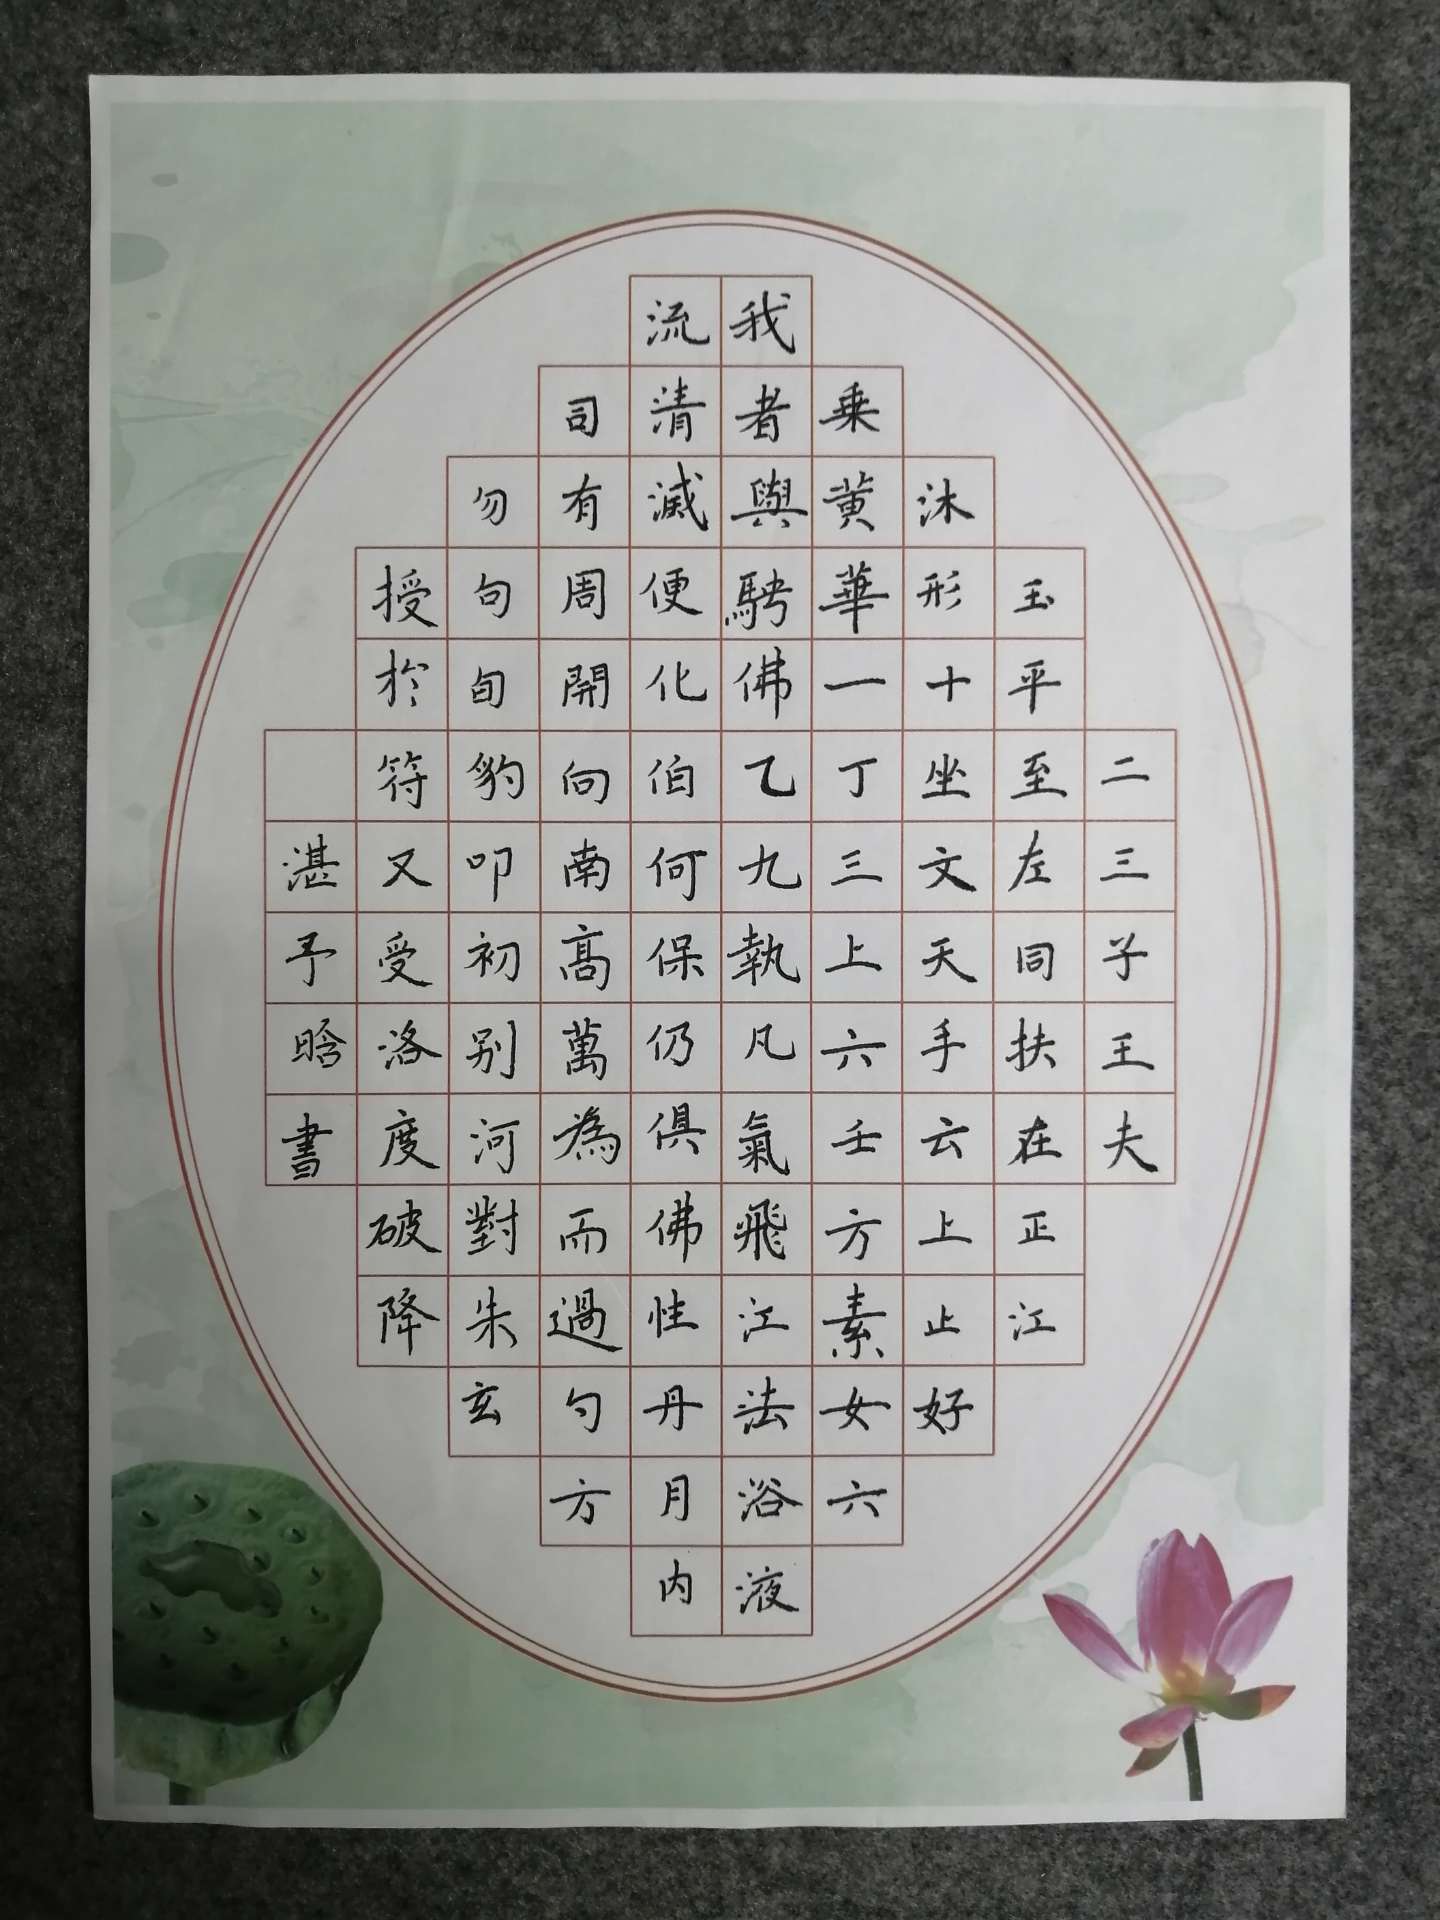 二三子王夫
玉平至左同扶在正江
沐形十坐文天手云上止好
乗黄華一丁三上六壬方素女六
我者與騁佛乙九執凡氣飛江法浴液
流清滅便化伯何保仍俱佛性丹月内
司有周開向南高萬為而過勺方
勿句旬豹叩初别河對朱玄
授於符又受洛度破降
湛予晗書